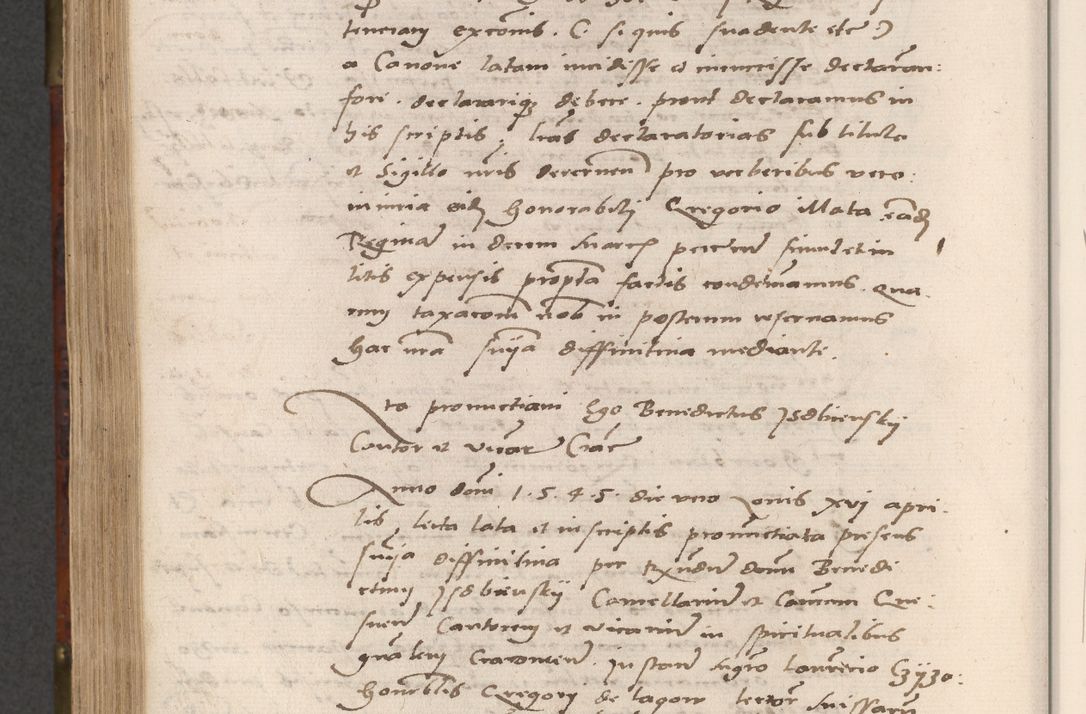 tenciam excomis. C. si quis suadente etc )
a Canone latam incidisse et incurrisse declaran:
fore. declararique debere. prout declaramus in
his scriptis, lras declaratorias sub titulo
et Sigillo nris decernen pro verberibus vero:
iniuria eidem honorabili Gregorio Mata eadem
Reginam in decem marcis pecun simul et in
litis expensis propterea factis condemnamus. Qua
rum taxacom nob in posterum reservamus
hac nra snia diffinitiva mediante.
Ita pronuctiavi Ego Benedictus Isdbiensky
Cantor et vicar Crac
Anno domi 1.5.4.5. die vero Jovis xvi apri.
lis, lecta lata et in scriptis pronuctiata presens
snia diffinitiva per Rndum domi Benedi
ctum Isdbiensky Cancellarium et Canonicum Gne:
snen Cantorem et vicarium in spiritualibus
gnalem Cracovien. In stan mgro Laurencio
honorabilis Gregory de lagow lector